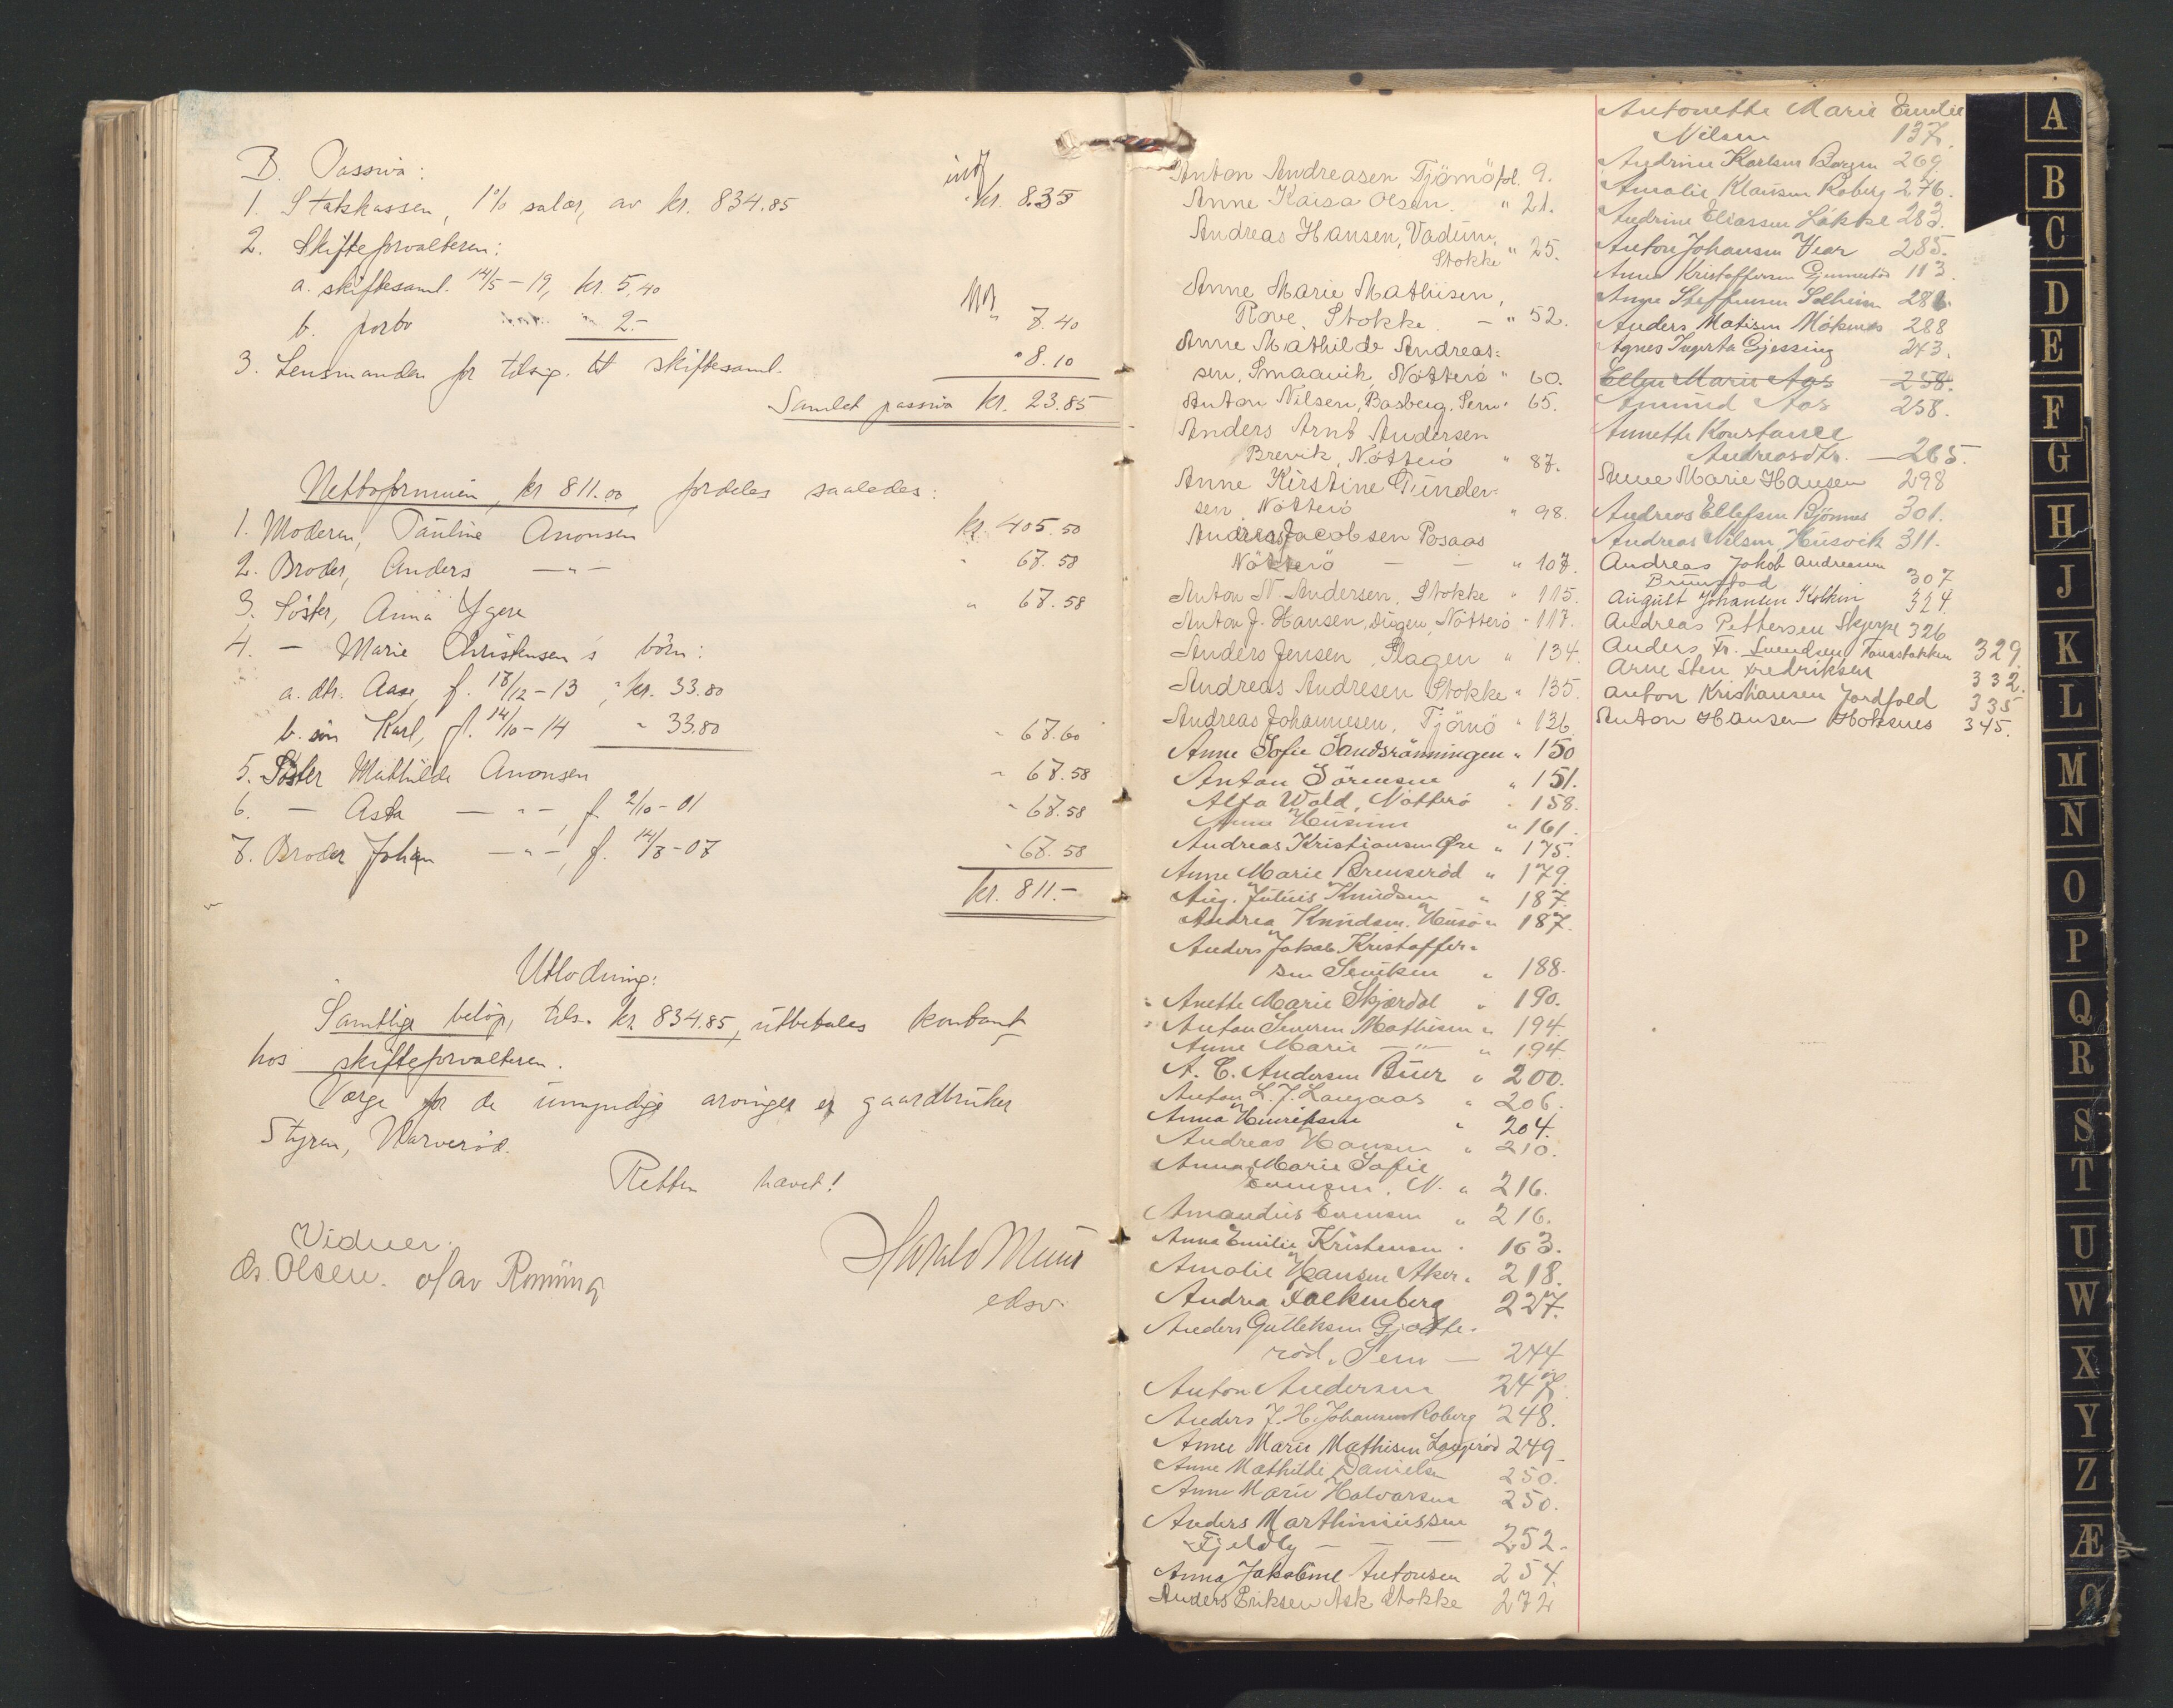 B. Passiva:
1. Statskassen, 1% salær, av kr. 834.85 kr. 8.35
2. Skifteforvalteren:
a. skiftesaml. 14/5-19, kr. 5,40
b. porto 2.- " 7.40
3. Lensmanden for tilsig. til skiftesaml. " 8.10
Samlet passiva kr. 23.85
Nettoformuen, kr 811.00 fordeles saaledes:
1. Moderen, Pauline Anonsen kr. 405.50
2. Broder, Anders —"— - 67.58
3. Söster, Anna Ygere " 67.58
4. — Marie Christensen's börn:
a. dtr. Aase, f. 18/12-13, kr. 33.80
b. sön Karl, f. 14/10-14 - 33.80 - 67.60
5. Söster Mathilde Anonsen - 67.58
6. — Asta —"—, f. 2/10-01 - 67.58
7. Broder Johan —"—, f. 14/8-07 - 67.58
kr. 811.-
Utlodning:
Samtlige belöp, tils. kr. 834.85, utbetales kontant
hos skifteforvalteren.
Verge for de umyndige arvinger er gaardbruker
Styren, Narveröd.
Retten hævet!
Vidner:
Os. Olsen. Olav Romüng
Harald Muus
edsv.
Anton Andreasen Tjömö fol. 9.
Anne Kaisa Olsen. " 21.
Andreas Hansen, Vadum,
Stokke " 25.
Anne Marie Mathisen,
Rove, Stokke. — " 52.
Anne Mathilde Andreas=
sen, Smaavik, Nötterö " 60.
Anton Nilsen, Basberg, Sem " 65.
Anders Arnt Andersen
Brevik, Nötterö " 87.
Anne Kirstine Gunder-
sen, Nötterö " 98.
Andreas Jacobsen Posaas
Nötterö — — " 107.
Anton N. Andersen, Stokke " 115.
Anton J. Hansen, Dugen, Nötterö " 117.
Anders Jensen, Slagen " 134.
Andreas Andresen Stokke " 135.
Andreas Johannesen, Tjömö " 136
Anne Sofie Sandsrönningen " 150
Anton Sörensen " 151.
Alfa Wold, Nötterö - 158.
Anna Husum " 161.
Andreas Kristiansen Øre " 175.
Anne Marie Brenseröd " 179.
Aug. Julius Knudsen " 187.
Andrea Knudsen. Husö " 187.
Anders Jakob Kristoffer=
sen Semken " 188.
Anette Marie Skjærdal " 190.
Anton Severin Mathisen " 194.
Anne Marie —"— " 194.
A. E. Andersen Buer " 200.
Anton L. J. Langaas " 206.
Anna Henriksen " 204.
Andreas Hansen " 210.
Anna Marie Sofie
Evensen, N. " 216.
Amandus Evensen " 216.
Anna Emilie Kristensen . 163.
Amalie Hansen Aker " 218.
Andrea Falkenberg 227.
Anders Gulleksen Gjölte-
röd, Sem — 244
Anton Andersen 247.
Anders J. H. Johansen Roberg 248.
Anne Marie Mathisen Langeröd 249
Anne Mathilde Danielsen 250.
Anne Marie Halvorsen 250.
Anders Marthiniussen
Fjeldly — — — 252.
Anna Jakobine Antonsen 254.
Anders Eriksen Ask Stokke 272
Antonette Marie Emilie
Nilsen 137.
Andrine Karlsen Borgen 269.
Amalie Klausen Roberg 276.
Andrine Eliassen Lökke 283.
Anton Johansen Vear 285.
Anna Kristoffersen 113.
Anne Steffensen Solheim 286.
Anders Matisen Möknes 288
Agnes Ingerta Gjessing 243.
Ellen Marie Aas 258.
Amund Aas 258.
Annette Konstance
Andreasdtr. — 265.
Anne Marie Hansen 298
Andreas Ellefsen Bjönnes 301.
Andreas Nilsen Husvik 311.
Andreas Jakob Andreasen
Brunstad 307
August Johansen Kolkin 324.
Andreas Pettersen Skjerpe 326
Anders Fr. Svendsen 329.
Arne Sten Fredriksen 332.
Anton Kristiansen Jordfald 335
Anton Hansen Hoksnes 345.
A
B
C
D
E
F
G
H
J
K
L
M
N
O
P
Q
R
S
T
U
W
X
Y
Z
Æ
Ø